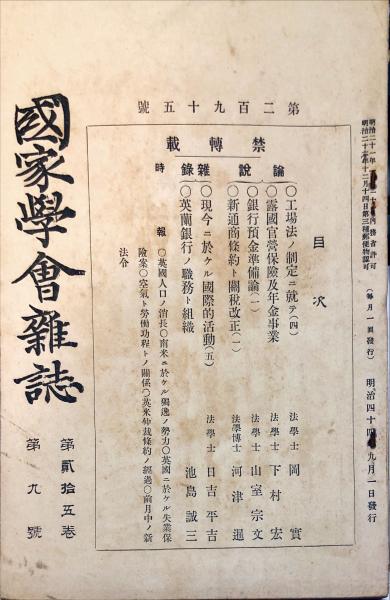 明治二十一年 二十 內務省許可
明治二十年十二月十四日第三種郵便物認可
(每月一回發行)
明治四十四 九月一日發行
第二百九十五號
禁轉載
目次
論說
○工場法ノ制定ニ就テ(四) 法學士 岡實
○露國官營保險及年金事業 法學士 下村宏
○銀行預金準備論(一) 法學士 山室宗文
○新通商條約ト關稅改正(一) 法學博士 河津暹
雜錄
○現今ニ於ケル國際的活動(五) 法學士 日吉平吉
○英蘭銀行ノ職務ト組織 池島誠三
時報
○英國人口ノ消長○南米ニ於ケル獨逸ノ勢力○英國ニ於ケル失業保
險案○空氣ト勞働功程トノ關係○英米仲裁條約ノ經過○前月中ノ新
法令
國家學會雜誌
第貳拾五卷 第九號